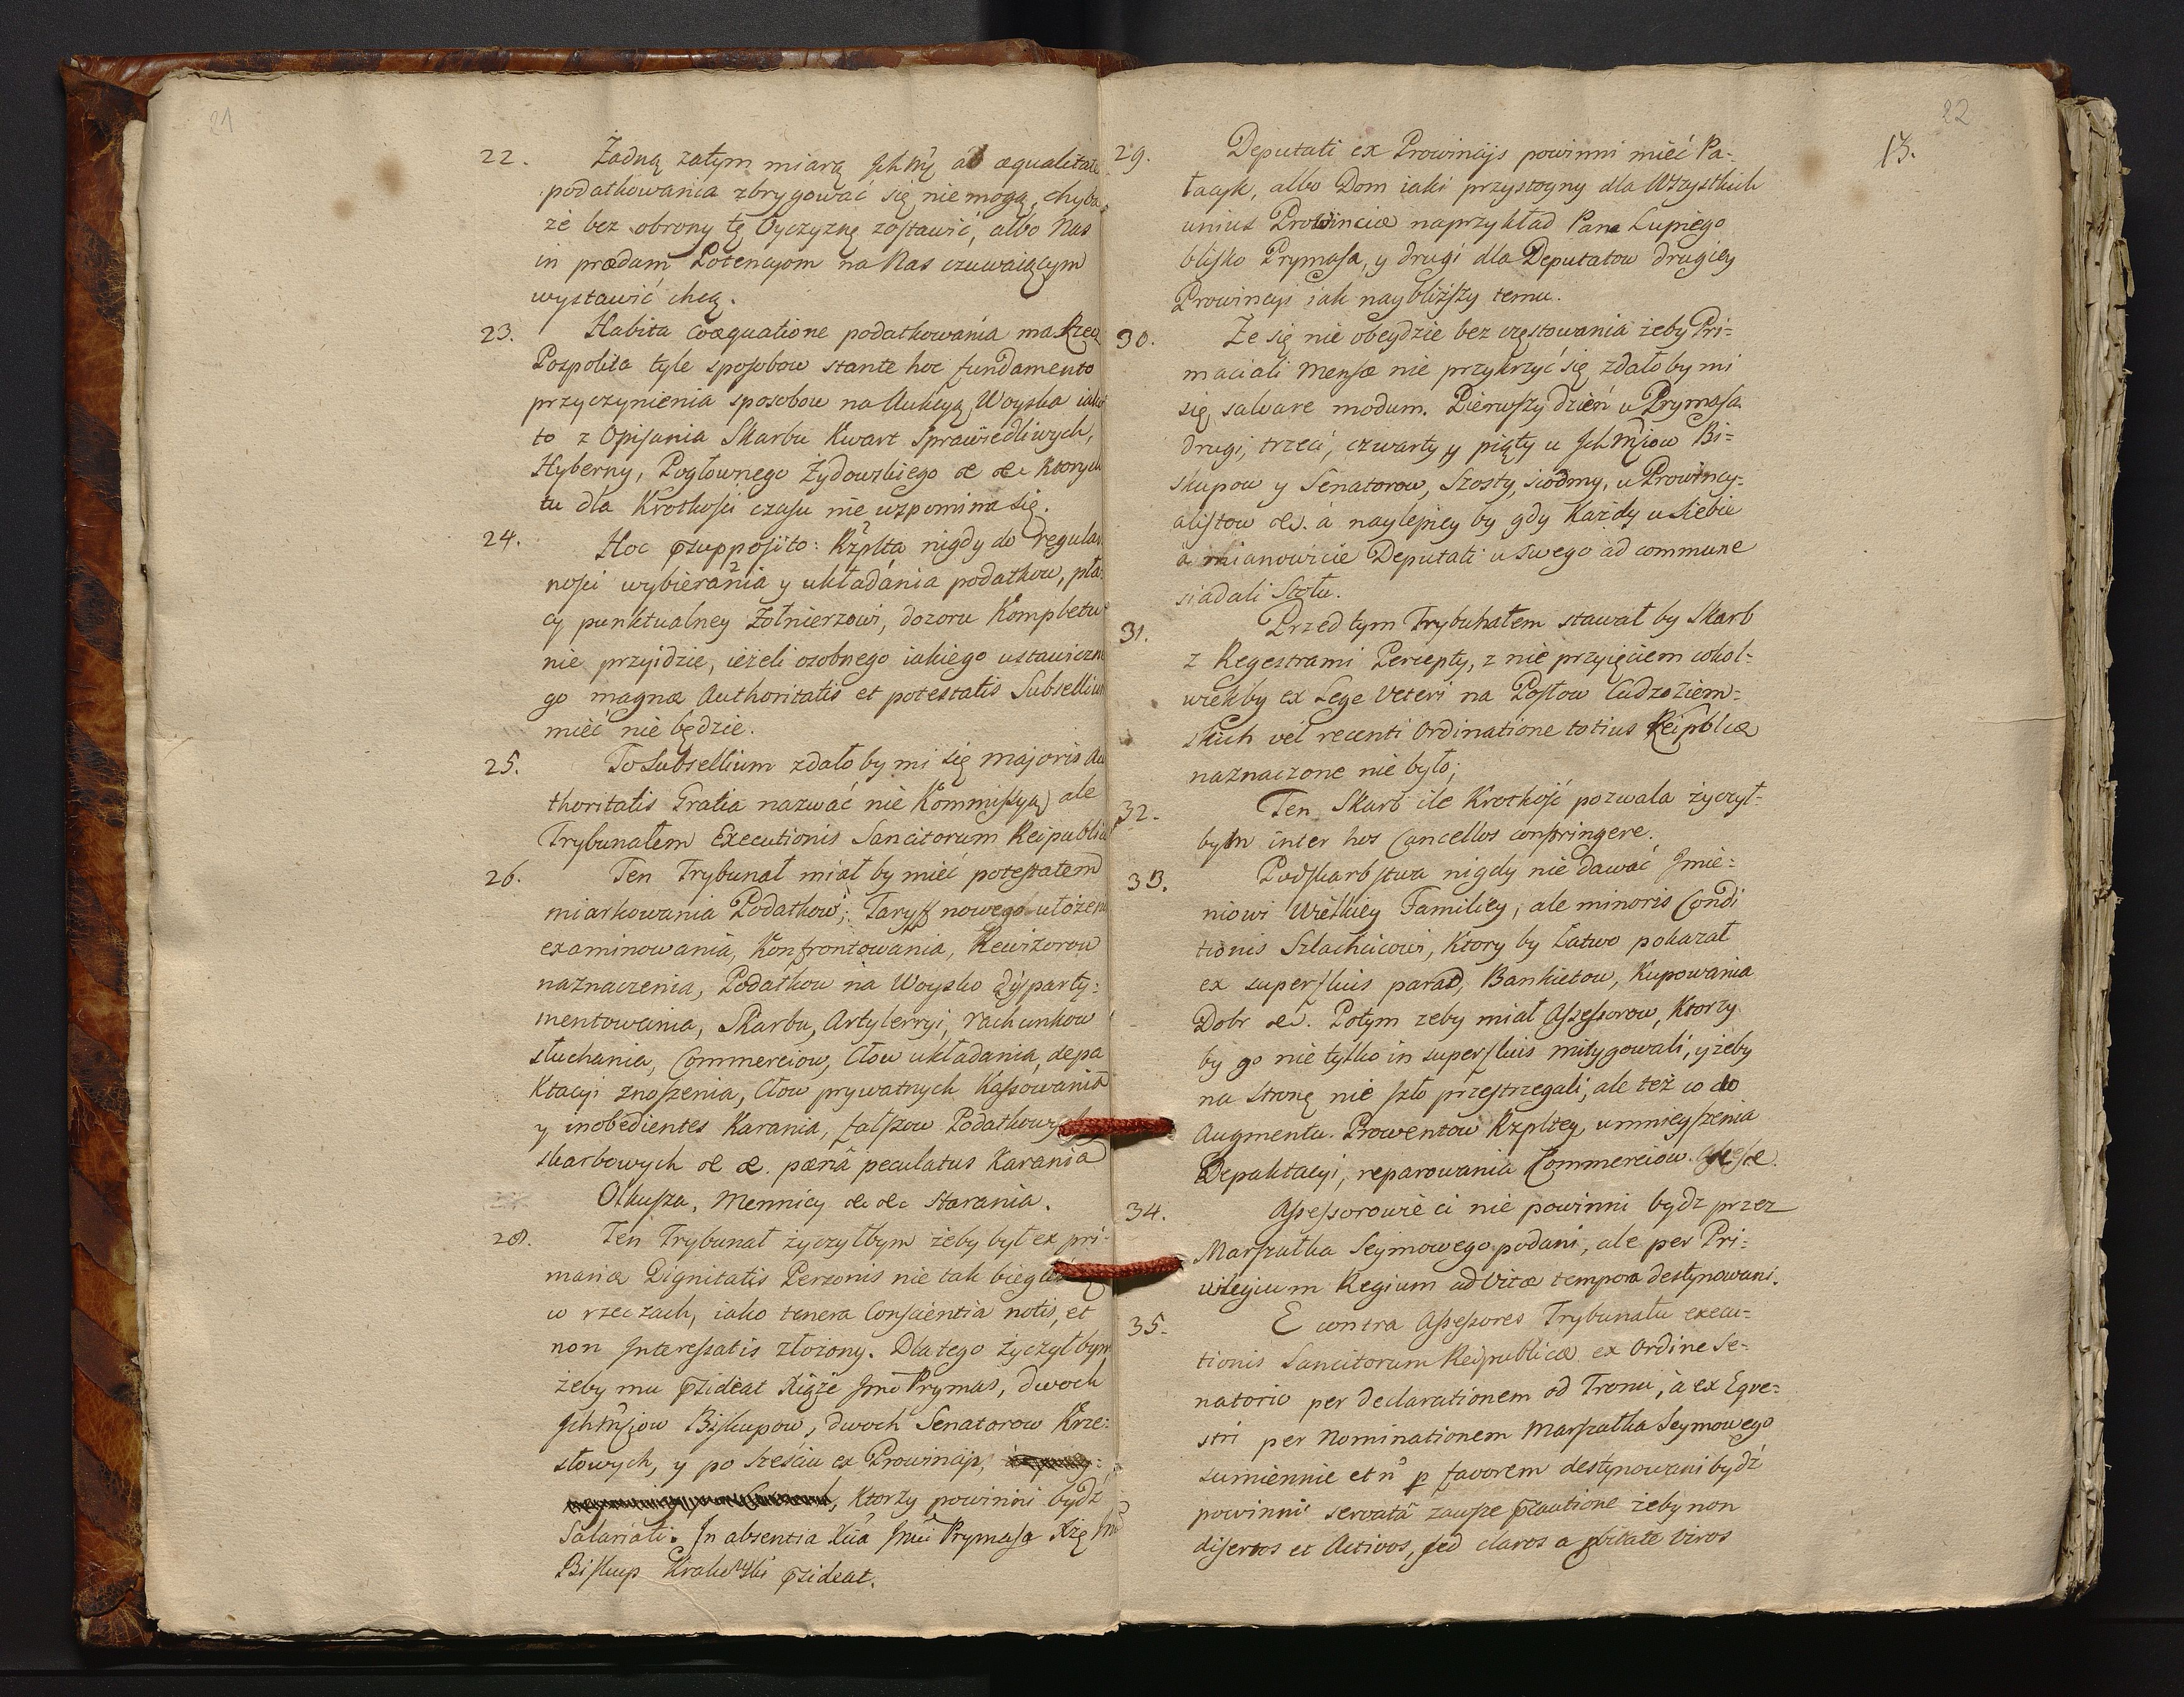 21
22. Żadną zatym miarą JchMć ad æqualitatem
podatkowania zbrygować się nie mogą, chyba
że bez obrony tę Oyczyznę zostawić, albo Nas
in prædam Potencyom na Nas czuwaiącym
wystawić chcą.
23. Habita coæquatione podatkowania ma Rzecz
Pospolita tyle sposobow stante hoc fundamento
przyczynienia sposobow na Aukcyą Woyska iako
to z Opisania Skarbu Kwart Sprawiedliwych,
Hyberny, Pogłownego Żydowskiego &c &c Ktorych
tu dla Krotkości czasu nie wspomina się.
24. Hoc præsupposito: Rzplta nigdy do regular
ności wybierania y układania podatkow, pła
cy punktualney Żołnierzowi, dozoru Kompletu
nie przyidzie, ieżeli osobnego iakiego ustawiczne
go magnæ Authoritatis et potestatis Subsellium
mieć nie będzie.
25. To Subsellium zdało by mi się majoris Au
thoritatis Gratia nazwać nie Kommissyą, ale
Trybunałem Executionis Sancitorum Reipublicæ
26. Ten Trybunał miał by mieć potestatem
miarkowania Podatkow; Taryff nowego ułożenia
examinowania, Konfrontowania, Rewizorow
naznaczenia, Podatkow na Woysko dyparty:
mentowania, Skarbu, Artylerryi, rachunkow
słuchania, Commerciow, Cłow układania, depa
ktacyi znoszenia, Cłow prywatnych Kassowania
y inobedientes Karania, fałszow Podatkowych
skarbowych &c &c. pœnâ peculatus Karania
Olkusza, Mennicy &c &c Starania.
28. Ten Trybunał życzyłbym żeby był ex pri-
mariæ Dignitatis Personis nie tak biegłes
w rzeczach, iako tenera Conscientia notis, et
non Interessatis złożony. Dla tego życzyłbym
żeby mu præsideat Xiąże Jmć Prymas, dwoch
JchMciow Biskupow, dwoch Senatorow Krze:
słowych, y po sześciu ex Prowincijs,
Ktorzy powinni bydź
Salariati. In absentia Xcia Jmci Prymasa Xżę Jmć
Biskup Krakowski præsideat.
22
13.
29. Deputati ex Prowincijs powinni mieć Pa-
łacyk, albo Dom iaki przystoyny dla Wszystkich
unius Prowinciæ naprzykład Pana Lupiego
blisko Prymasa, y drugi dla Deputatow drugiey
Prowincyi iak naybliższy temu.
30. Że się nie obeydzie bez częstowania żeby Pri-
maciali Mensæ nie przykrzyć się zdałoby mi
się salvare modum. Pierwszy dzień u Prymasa
drugi, trzeci, czwarty y piąty u JchMciow Bi-
skupow y Senatorow, Szosty, siodmy, u Prowincy-
alistow &c. à naylepiey by gdy Każdy u siebie
a mianowicie Deputati u swego ad commune
siadali Stołu.
31. Przed tym Trybunałem stawał by Skarb
z Regestrami Percepty, z nie przyięciem cokol-
wiekby ex Lege Veteri na Posłow Cudzoziem-
skich vel recenti Ordinatione totius Reipblicæ
naznaczone nie było;
32. Ten Skarb ile Krotkość pozwala życzył-
bym inter hos Cancellos constringere.
33. Podskarbstwa nigdy nie dawać Jmie-
niowi Wielkiey Familiey, ale minoris Condi
tionis Szlachcicowi, Ktory by łatwo pokazał
ex superfluis parad, Bankietow, Kupowania
Dobr &c. Potym zeby miał Assessorow, Ktorzy
by go nie tylko in superfluis mitygowali, y żeby
na stronę nie szło przestrzegali, ale też co do
Augmentu Prowentow Rzpltey, umnieyszenia
Depaktacyi, reparowania Commerciow &c &c.
34. Assessorowie ci nie powinni bydz przez
Marszałka Seymowego podani, ale per Pri-
vilegium Regium ad Vitæ tempora destynowani.
35. E contra Assessores Trybunału execu-
tionis Sancitorum Reipublicæ ex Ordine Se-
natorio per declarationem od Tronu, à ex Eqve-
stri per Nominationem Marszałka Seymowego
sumiennie et nõ p favorem destynowani bydź
powinni servatâ zawsze præcautione żeby non
disertos et Activos, sed claros a probitate Viros